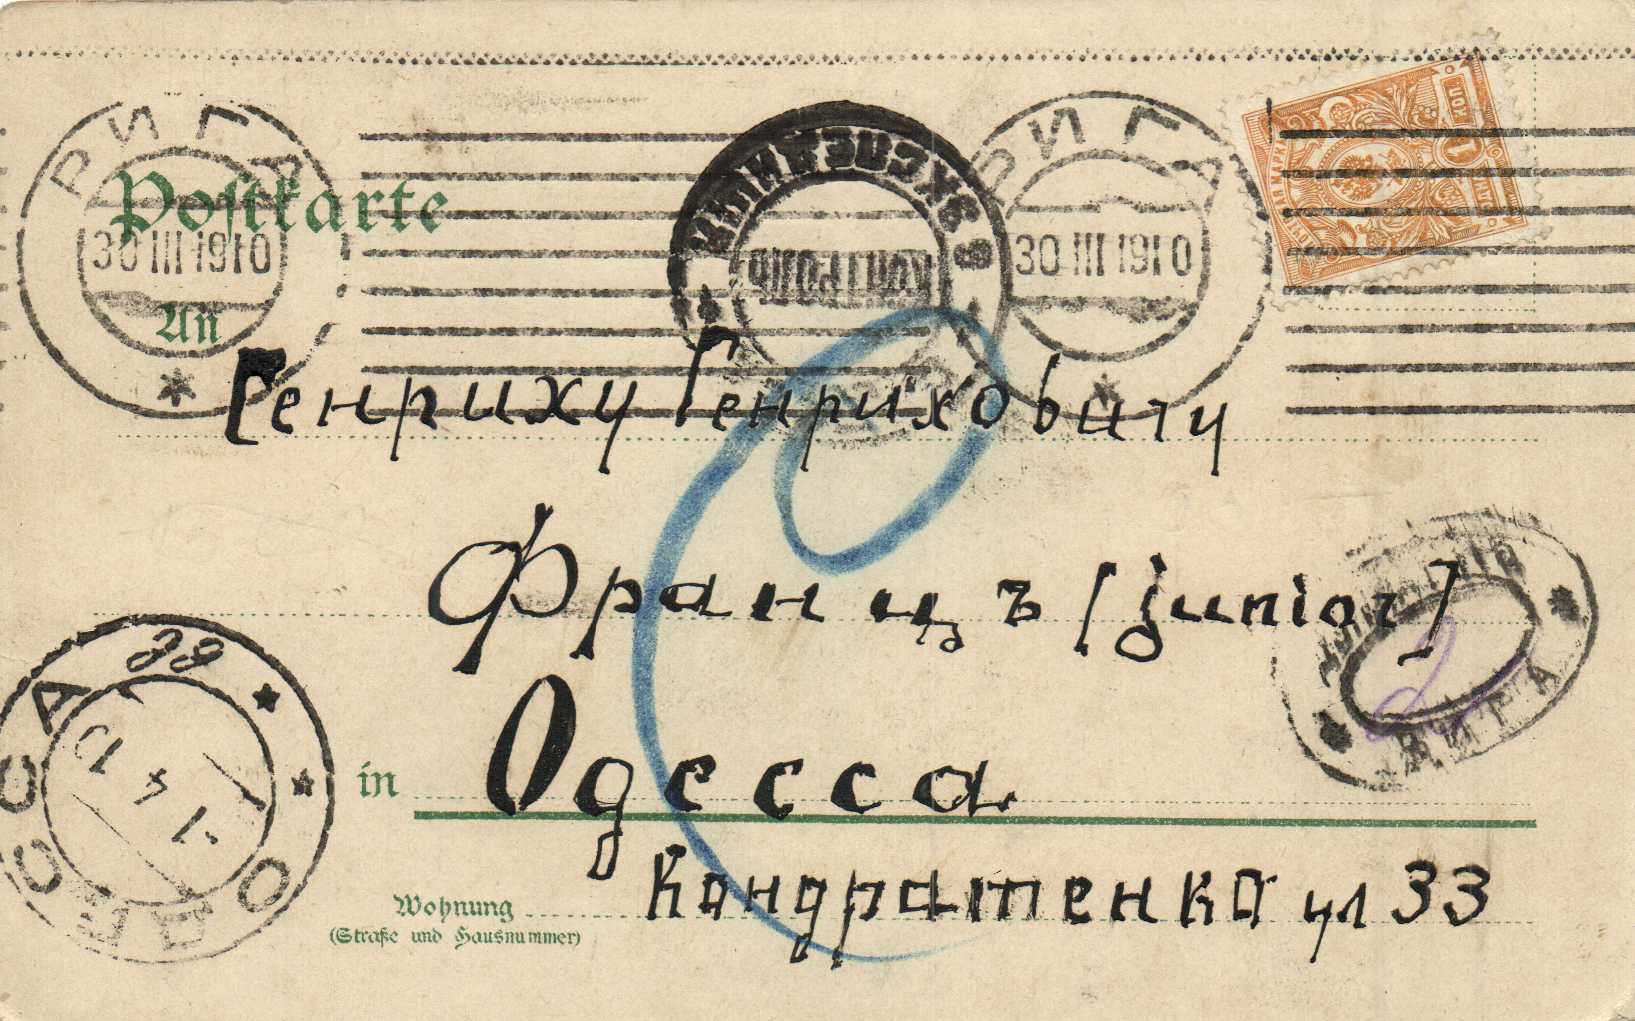 РИГА
30 III 1910
РИГА
30 III 1910
9 ЭКСПЕДИЦІЯ
КОНТРОЛЬ
1
Postkarte
An
Генриху Генриховичу
Францъ (junior)
РИГА
2
ОДЕССА
1 4 10
in
Одесса
Wohnung
(Straße und Hausnummer)
Кондратенко ул 33